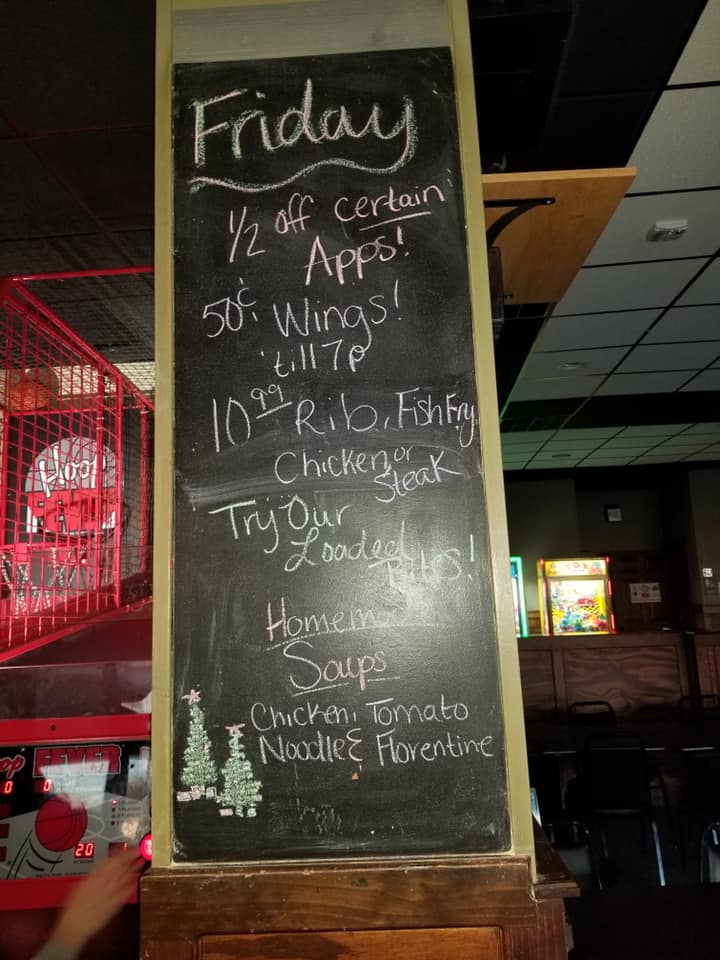 Friday
1/2 off certain
Apps!
50¢ Wings!
'till 7p
10.99 Rib, Fish Fry,
Chicken or
Steak
Try Our
Loaded
Bites!
Homem
Soups
Chicken, Tomato
Noodle & Florentine
Hoop
FEVER
0 0
20